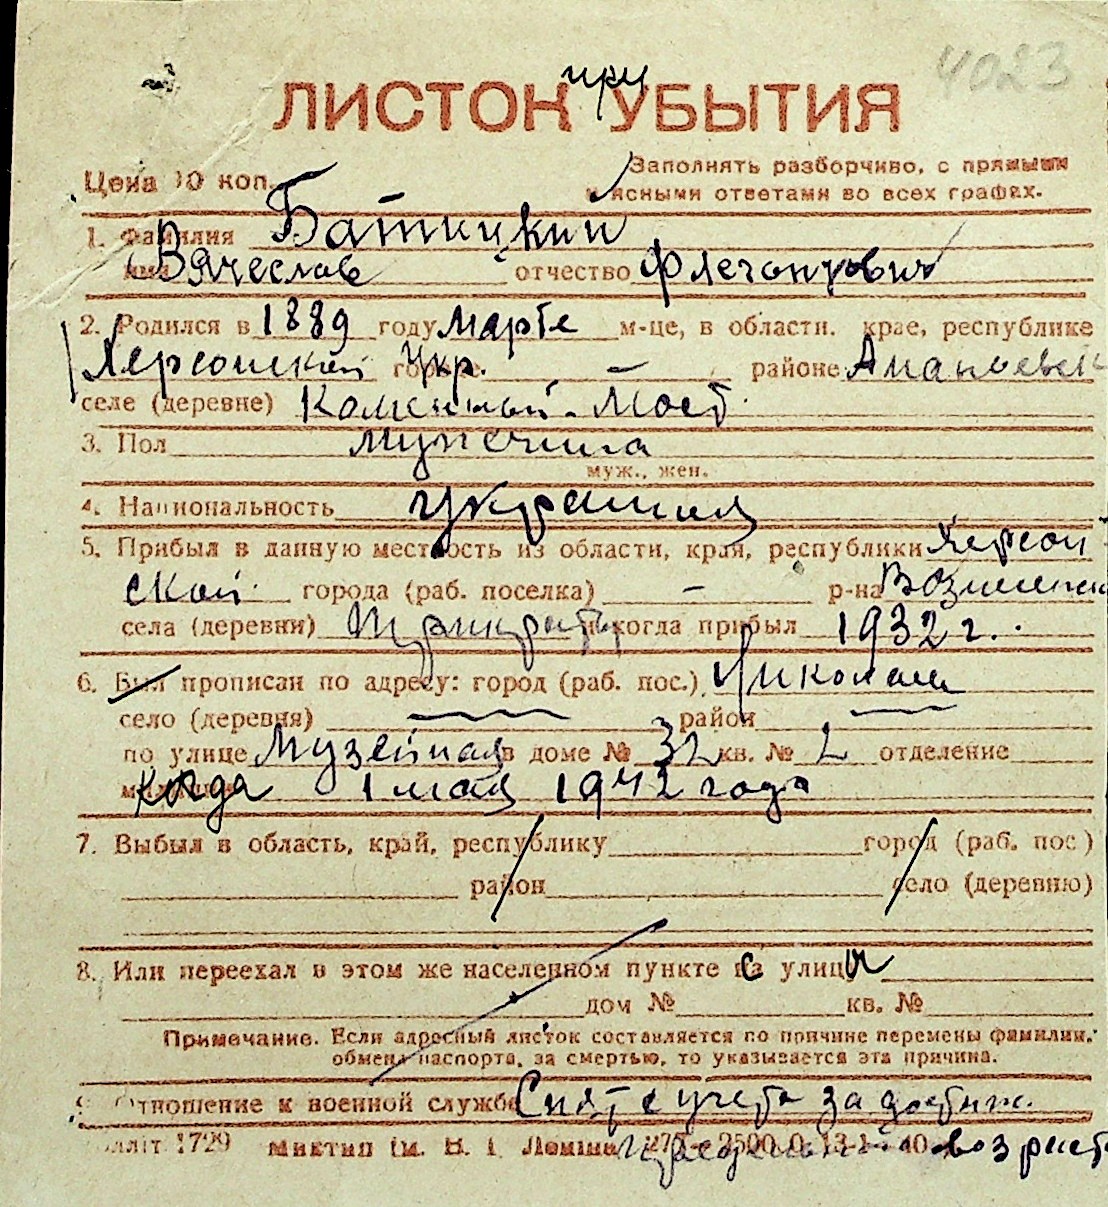 4023
ЛИСТОК при УБЫТИЯ
Цена 10 коп. Заполнять разборчиво, с прямыми
и ясными ответами во всех графах.
1. Фамилия Батицкий
имя Вячеслав отчество Флегонтович
2. Родился в 1889 году Марте м-це, в области, крае, республике
Херсонской Укр. районе Ананьевск
селе (деревне) Каменный-Мост
3. Пол мужчина
муж., жен.
4. Национальность украинец
5. Прибыл в данную местность из области, края, республики Херсон
ской города (раб. поселка) - р-на Вознесенск
села (деревни) и когда прибыл 1932 г.
6. Был прописан по адресу: город (раб. пос.) Николаев
село (деревня) район
по улице Музейная в доме № 32 кв. № 2 отделение
когда 1 мая 1942 года
7. Выбыл в область, край, республику город (раб. пос.)
район село (деревню)
8. Или переехал в этом же населенном пункте с улицы
дом № кв. №
Примечание. Если адресный листок составляется по причине перемены фамилии,
обмена паспорта, за смертью, то указывается эта причина.
9. Отношение к военной службе Снят с учета за достиж.
1729 Миктип ім. В. І. Леніна возраст